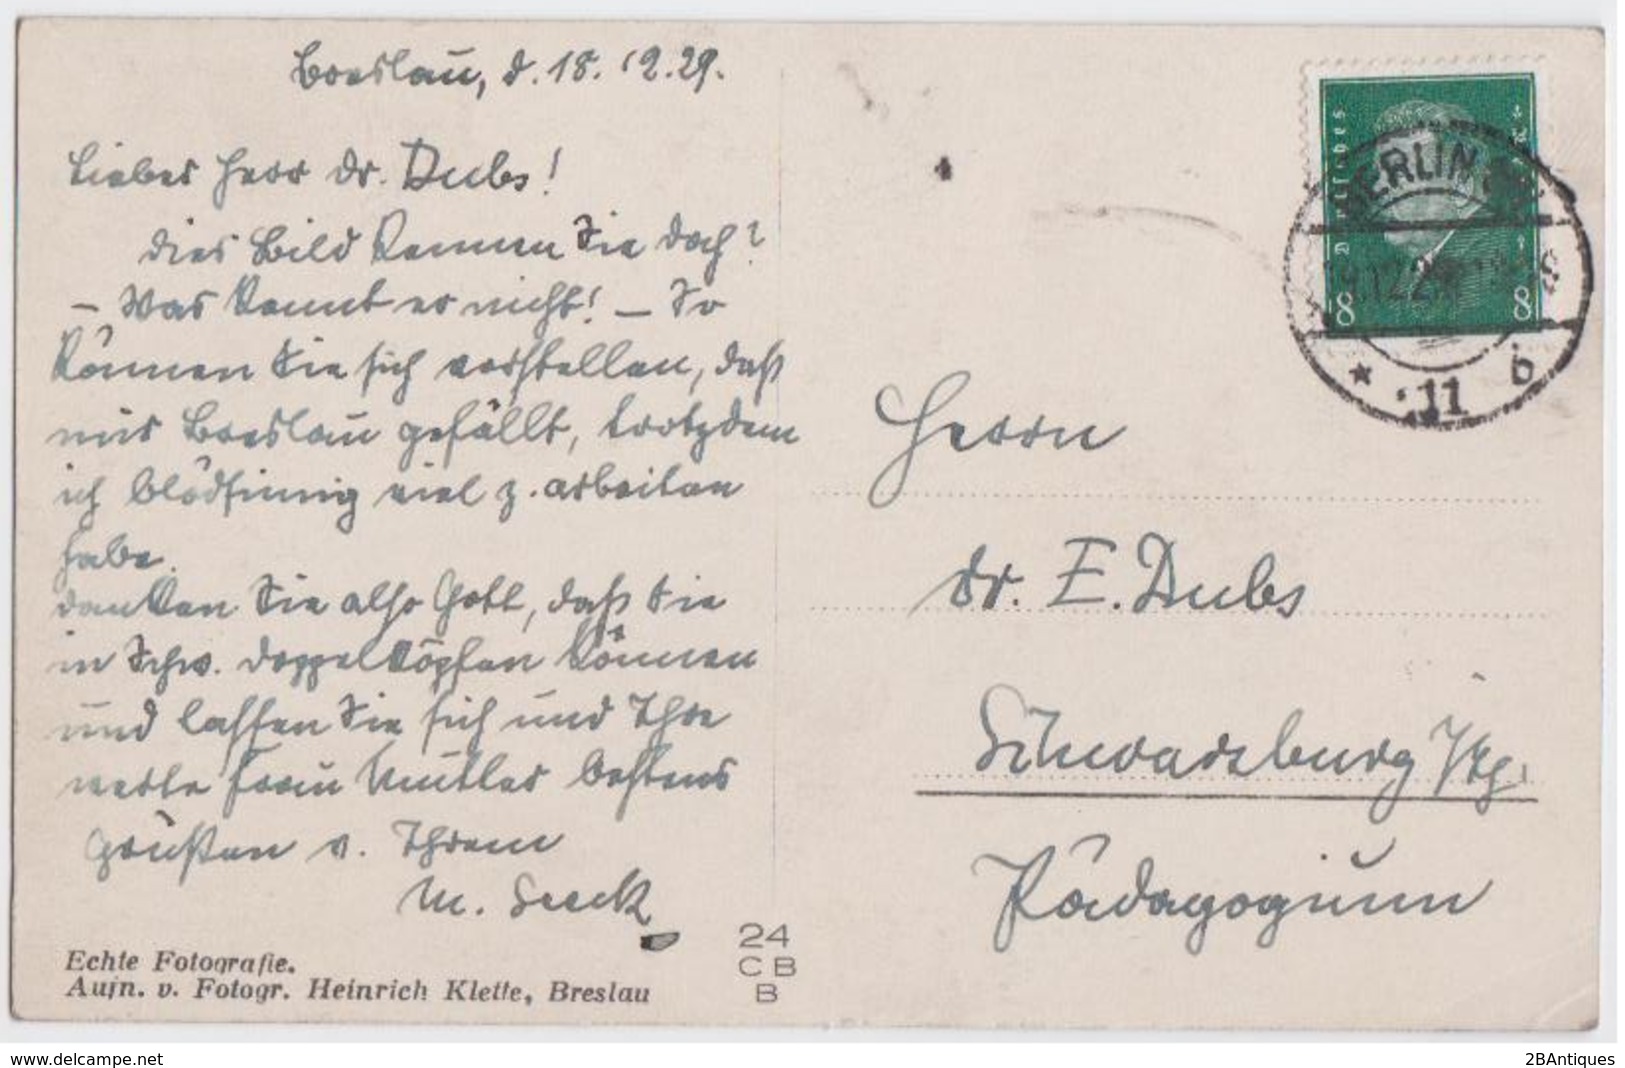 Breslau, d. 18. 12. 29.
Lieber Herr Dr. Dubs!
Dies Bild kennen Sie doch?
– Was kennt er nicht! – So
können Sie sich vorstellen, daß
mir Breslau gefällt, trotzdem
ich blödsinnig viel z. arbeiten
habe.
Danken Sie also Gott, daß Sie
in Schw. doppelköpfen können
und lassen Sie sich und Ihre
werte Frau Mutter bestens
grüßen v. Ihrem
M. Seeck
Echte Fotografie.
Aufn. v. Fotogr. Heinrich Klette, Breslau
24
CB
B
Deutsches
8 8
BERLIN
.12.29
* 11 b
Herrn
Dr. E. Dubs
Schwarzburg
Pädagogium
www.delcampe.net
2BAntiques